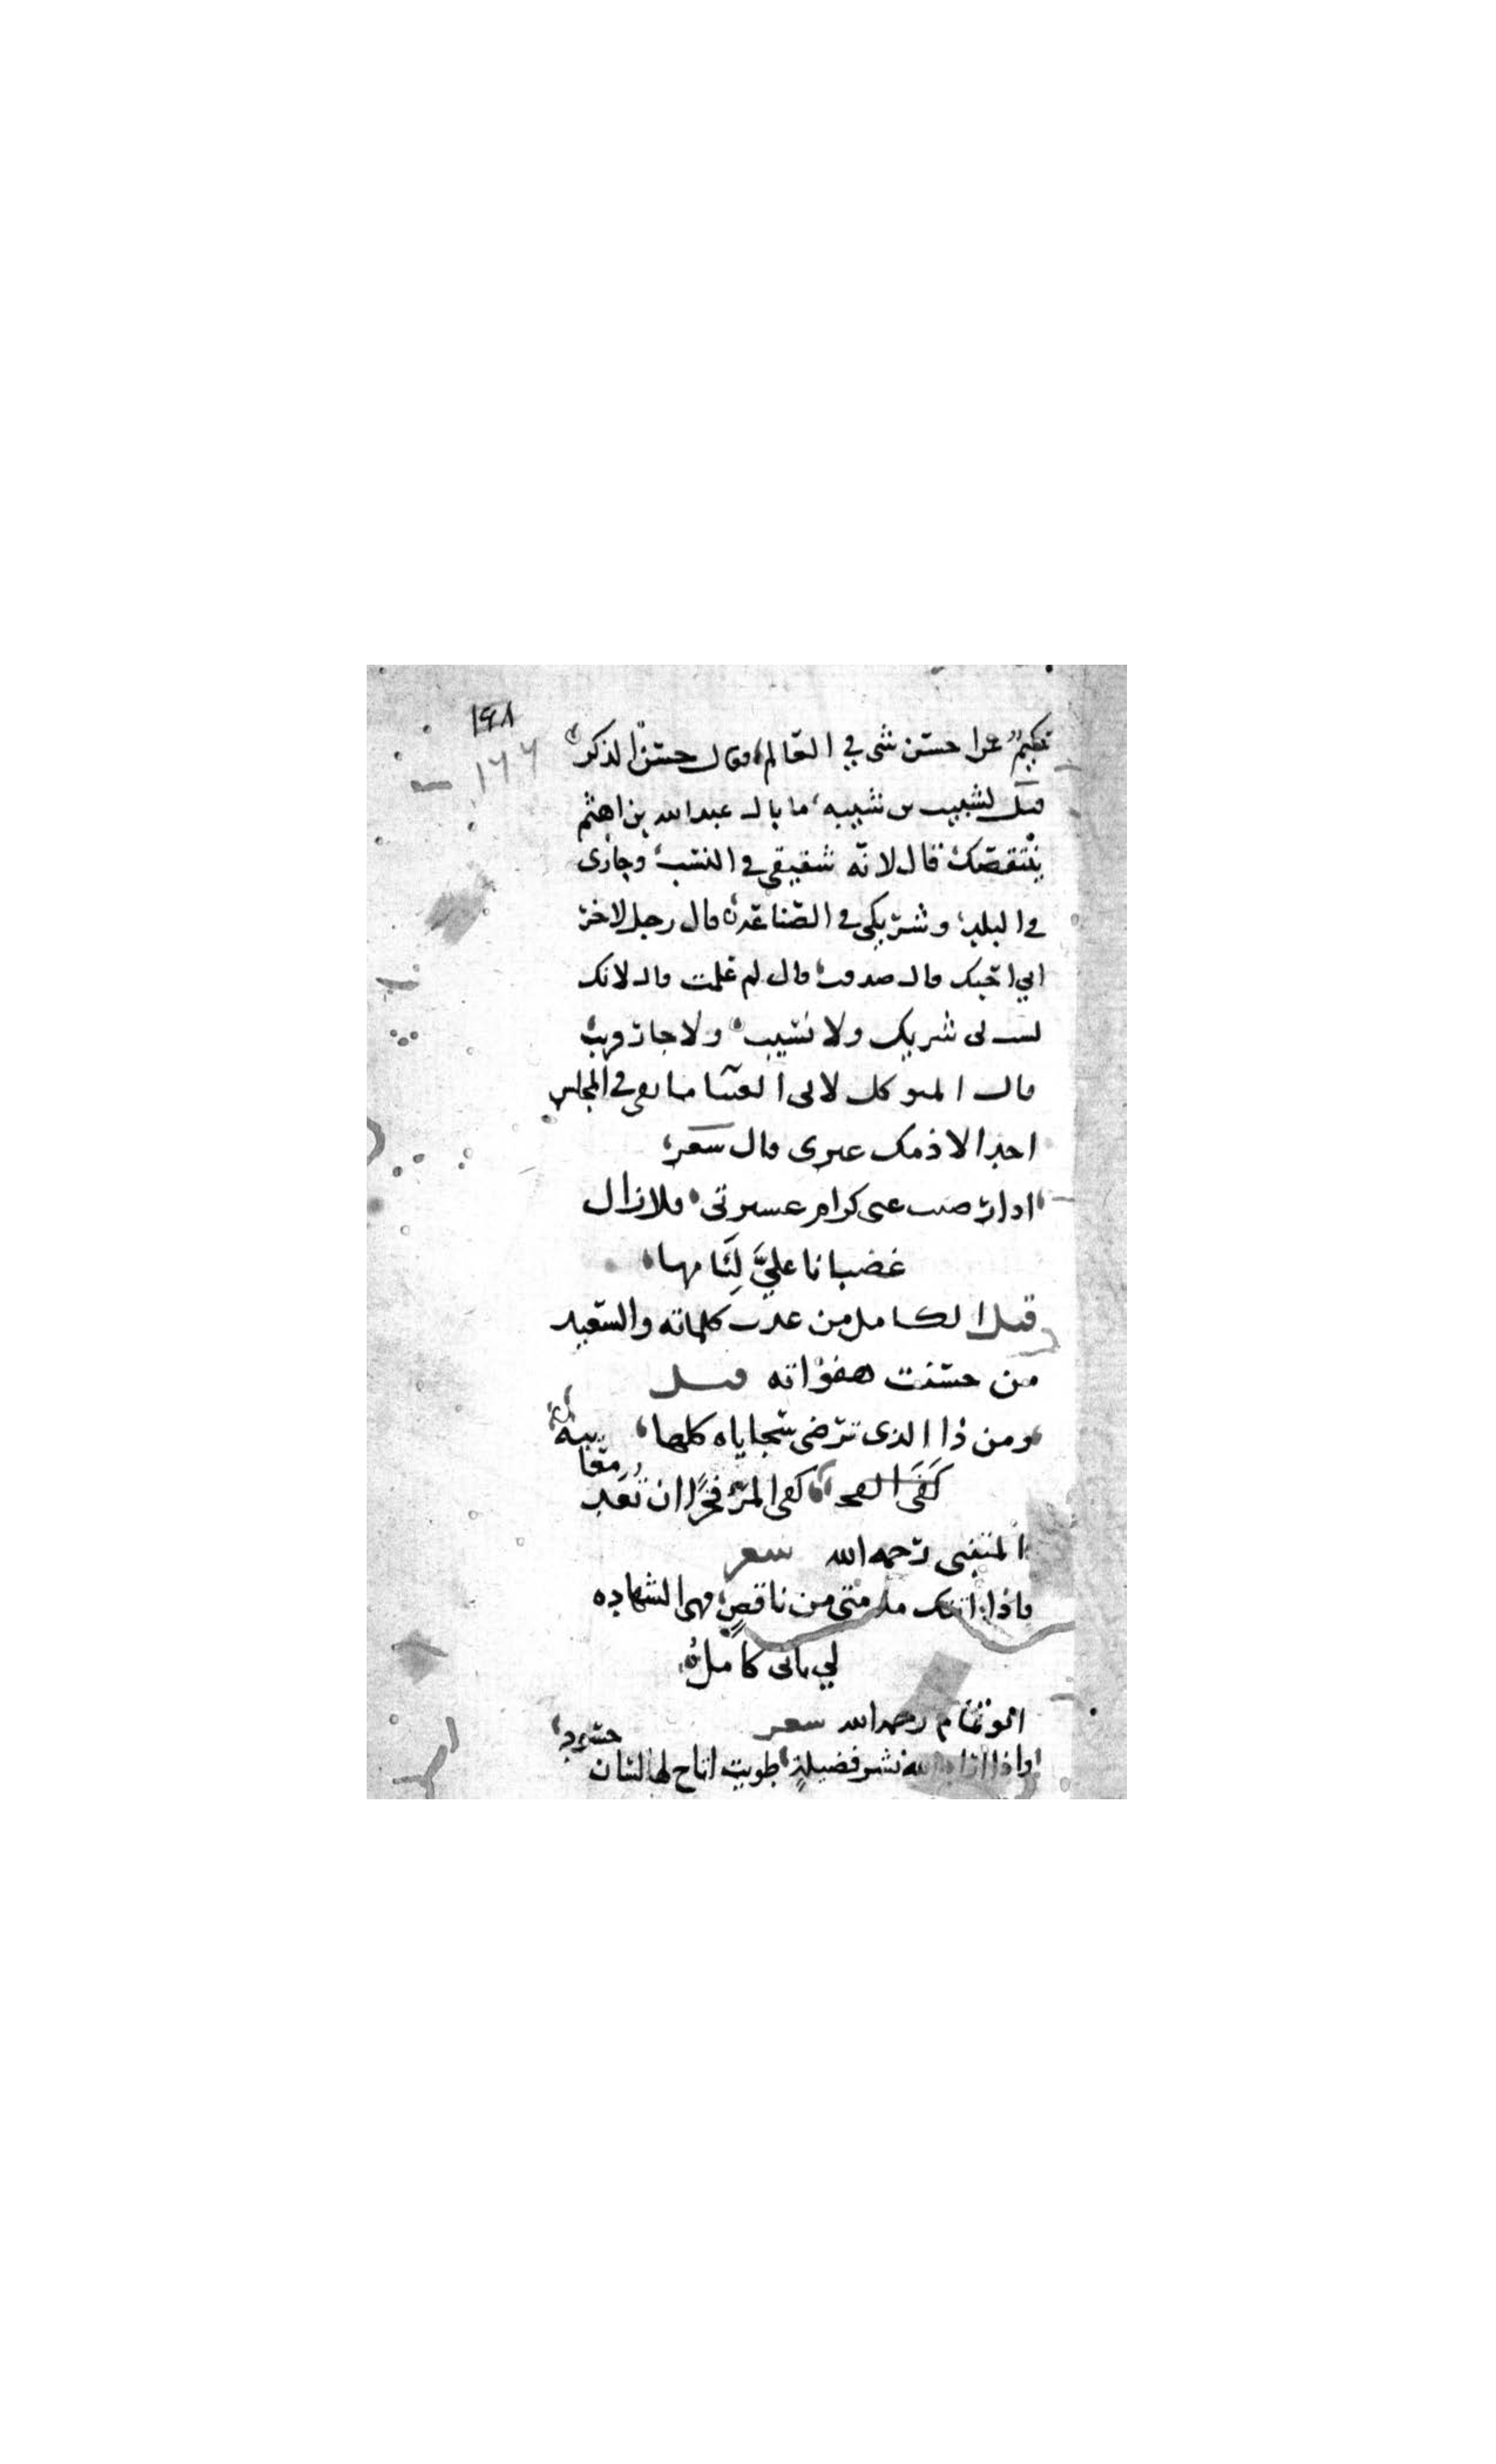 ١٤٨
١٦٦
حكيم عن احسن شى في العالم فقال حسن الذكر
قيل لشبيب بن شيبه ما بال عبد الله بن اهتم
ينتقصك قال لانه شقيقي في النسب وجارى
في البلد وشريكى في الصناعة قال رجل لاخر
اني احبك قال صدقت قال لم علمت قال لانك
لست لى شريك ولا نسيب ولا جار قريب
قال المتوكل لابى العينا ما بقى في المجلس
احدا الا ذمك غيرى قال شعر
اذا رضيت عنى كرام عشيرتى فلا زال
غضبانا عليَّ لِئَامها
قيل الكامل من عدت كلماته والسعيد
من حسنت هفواته قيل
ومن ذا الذى ترضى سجاياه كلها
كَفَى المر فخرًا ان تعد معايبه
المتنبى رحمه الله شعر
واذا اتتك مذمتى من ناقصٍ فهى الشهاده
لي بانى كاملُ
ابو تمام رحمه الله شعر
واذا اراد الله نشر فضيلةٍ طويت اتاح لها لسان حسود